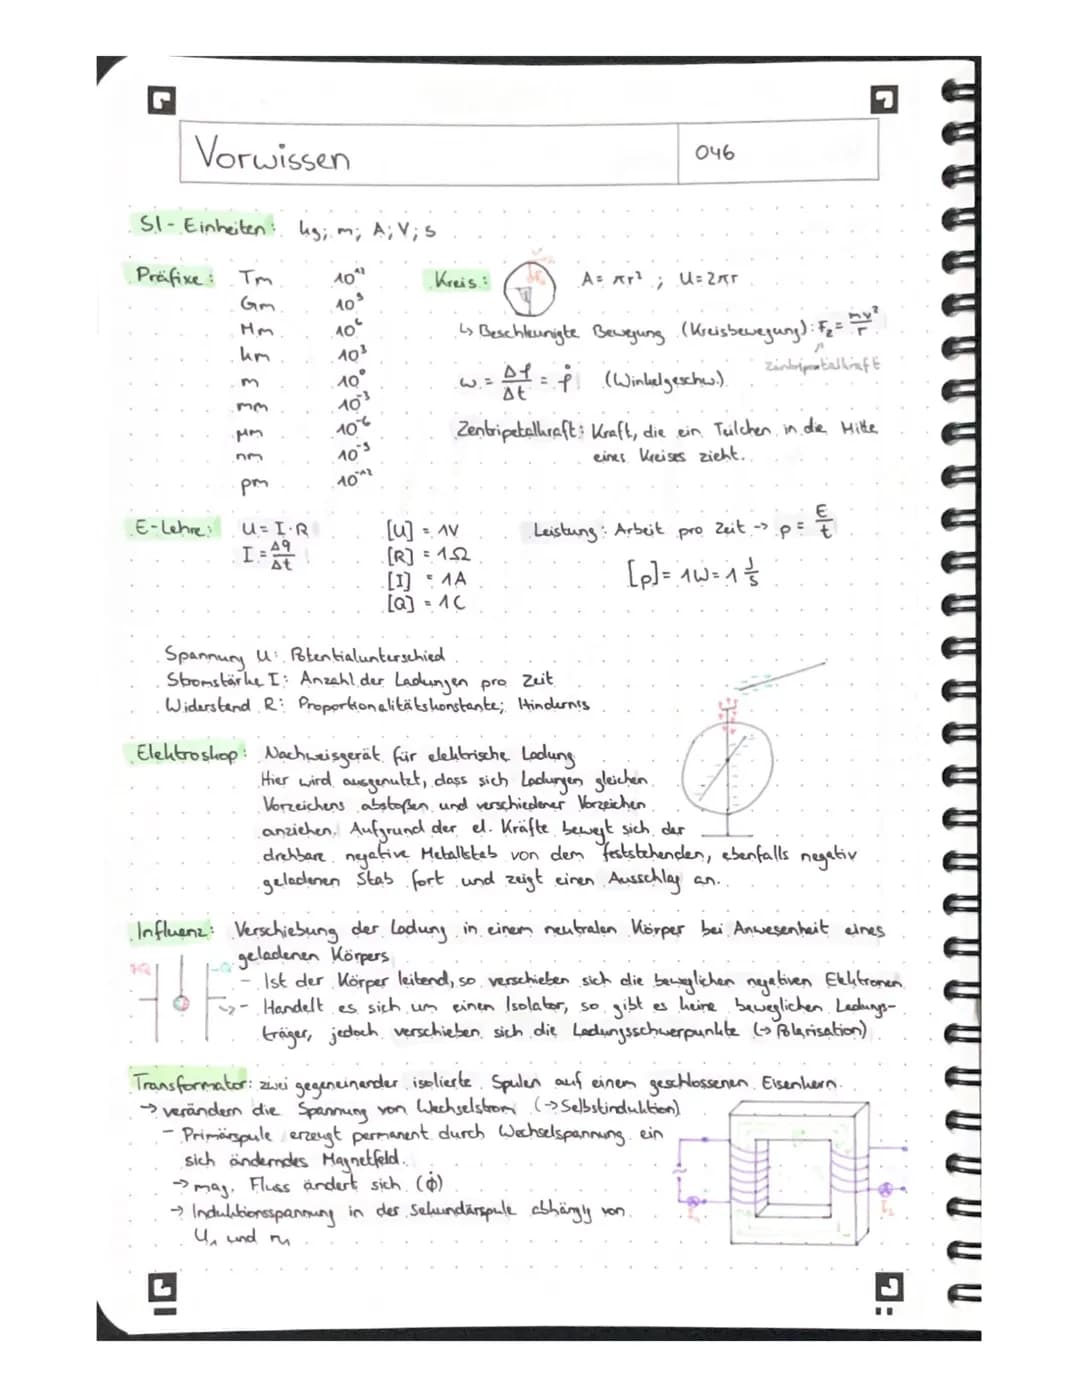 Vorwissen 046
SI-Einheiten: kg; m; A; V; s
Präfixe: Tm 10¹²
Gm 10⁹
Mm 10⁶
km 10³
m 10⁰
mm 10⁻³
µm 10⁻⁶
nm 10⁻⁹
pm 10⁻¹²
Kreis: A = πr²; U = 2πr
↳ Beschleunigte Bewegung (Kreisbewegung): F_z = mv²/r
Zentripetalkraft
ω = Δφ/Δt = φ̇ (Winkelgeschw.)
Zentripetalkraft: Kraft, die ein Teilchen in die Mitte
eines Kreises zieht.
E-Lehre: U = I·R
I = Δq/Δt
[U] = 1V
[R] = 1Ω
[I] = 1A
[Q] = 1C
Leistung: Arbeit pro Zeit -> p = E/t
[p] = 1W = 1 J/s
Spannung U: Potentialunterschied
Stromstärke I: Anzahl der Ladungen pro Zeit
Widerstand R: Proportionalitätskonstante; Hindernis
Elektroskop: Nachweisgerät für elektrische Ladung
Hier wird ausgenutzt, dass sich Ladungen gleichen
Vorzeichens abstoßen und verschiedener Vorzeichen
anziehen. Aufgrund der el. Kräfte bewegt sich der
drehbare negative Metallstab von dem feststehenden, ebenfalls negativ
geladenen Stab fort und zeigt einen Ausschlag an.
Influenz: Verschiebung der Ladung in einem neutralen Körper bei Anwesenheit eines
geladenen Körpers
- Ist der Körper leitend, so verschieben sich die beweglichen negativen Elektronen
- Handelt es sich um einen Isolator, so gibt es keine beweglichen Ladungs-
träger, jedoch verschieben sich die Ladungsschwerpunkte (→ Polarisation)
+Q -Q
Transformator: zwei gegeneinander isolierte Spulen auf einem geschlossenen Eisenkern.
→ verändern die Spannung von Wechselstrom (→ Selbstinduktion)
- Primärspule erzeugt permanent durch Wechselspannung ein
sich änderndes Magnetfeld.
→ mag. Fluss ändert sich (ϕ̇)
→ Induktionsspannung in der Sekundärspule abhängig von
U₁ und n₁